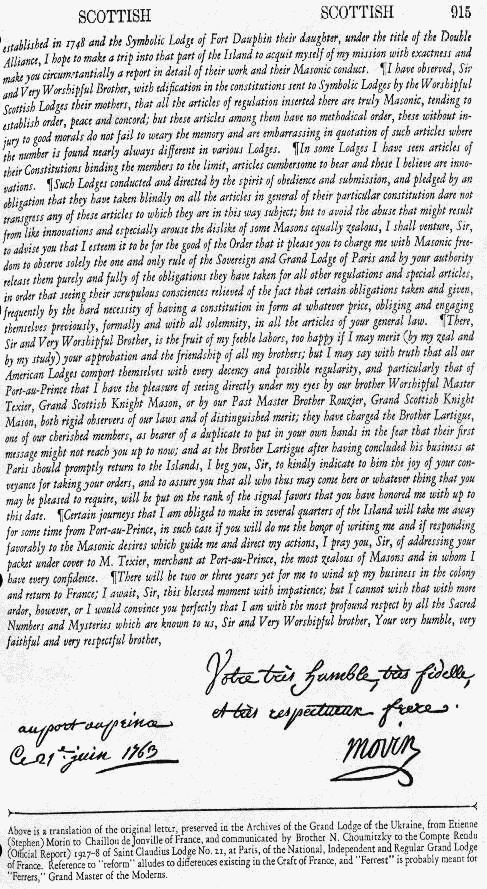 SCOTTISH SCOTTISH 915
established in 1748 and the Symbolic Lodge of Fort Dauphin their daughter, under the title of the Double
Alliance, I hope to make a trip into that part of the Island to acquit myself of my mission with exactness and
make you circumstantially a report in detail of their work and their Masonic conduct. ¶I have observed, Sir
and Very Worshipful Brother, with edification in the constitutions sent to Symbolic Lodges by the Worshipful
Scottish Lodges their mothers, that all the articles of regulation inserted there are truly Masonic, tending to
establish order, peace and concord; but these articles among them have no methodical order, these without in-
jury to good morals do not fail to weary the memory and are embarrassing in quotation of such articles where
the number is found nearly always different in various Lodges. ¶In some Lodges I have seen articles of
their Constitutions binding the members to the limit, articles cumbersome to bear and these I believe are inno-
vations. ¶Such Lodges conducted and directed by the spirit of obedience and submission, and pledged by an
obligation that they have taken blindly on all the articles in general of their particular constitution dare not
transgress any of these articles to which they are in this way subject; but to avoid the abuse that might result
from like innovations and especially arouse the dislike of some Masons equally zealous, I shall venture, Sir,
to advise you that I esteem it to be for the good of the Order that it please you to charge me with Masonic free-
dom to observe solely the one and only rule of the Sovereign and Grand Lodge of Paris and by your authority
release them purely and fully of the obligations they have taken for all other regulations and special articles,
in order that seeing their scrupulous consciences relieved of the fact that certain obligations taken and given,
frequently by the hard necessity of having a constitution in form at whatever price, obliging and engaging
themselves previously, formally and with all solemnity, in all the articles of your general law. ¶There,
Sir and Very Worshipful Brother, is the fruit of my feeble labors, too happy if I may merit (by my zeal and
by my study) your approbation and the friendship of all my brothers; but I may say with truth that all our
American Lodges comport themselves with every decency and possible regularity, and particularly that of
Port-au-Prince that I have the pleasure of seeing directly under my eyes by our brother Worshipful Master
Texier, Grand Scottish Knight Mason, or by our Past Master Brother Rouzier, Grand Scottish Knight
Mason, both rigid observers of our laws and of distinguished merit; they have charged the Brother Lartigue,
one of our cherished members, as bearer of a duplicate to put in your own hands in the fear that their first
message might not reach you up to now; and as the Brother Lartigue after having concluded his business at
Paris should promptly return to the Islands, I beg you, Sir, to kindly indicate to him the joy of your con-
veyance for taking your orders, and to assure you that all who thus may come here or whatever thing that you
may be pleased to require, will be put on the rank of the signal favors that you have honored me with up to
this date. ¶Certain journeys that I am obliged to make in several quarters of the Island will take me away
for some time from Port-au-Prince, in such case if you will do me the honor of writing me and if responding
favorably to the Masonic desires which guide me and direct my actions, I pray you, Sir, of addressing your
packet under cover to M. Texier, merchant at Port-au-Prince, the most zealous of Masons and in whom I
have every confidence. ¶There will be two or three years yet for me to wind up my business in the colony
and return to France; I await, Sir, this blessed moment with impatience; but I cannot wish that with more
ardor, however, or I would convince you perfectly that I am with the most profound respect by all the Sacred
Numbers and Mysteries which are known to us, Sir and Very Worshipful brother, Your very humble, very
faithful and very respectful brother,
Votre très humble, très fidelle,
et très respectueux frere.
au port au prince
Ce 21e juin 1763
Morin
Above is a translation of the original letter, preserved in the Archives of the Grand Lodge of the Ukraine, from Etienne
(Stephen) Morin to Chaillou de Jonville of France, and communicated by Brother N. Choumitzky to the Compte Rendu
(Official Report) 1927-8 of Saint Claudius Lodge No. 21, at Paris, of the National, Independent and Regular Grand Lodge
of France. Reference to "reform" alludes to differences existing in the Craft of France, and "Ferrest" is probably meant for
"Ferrers," Grand Master of the Moderns.